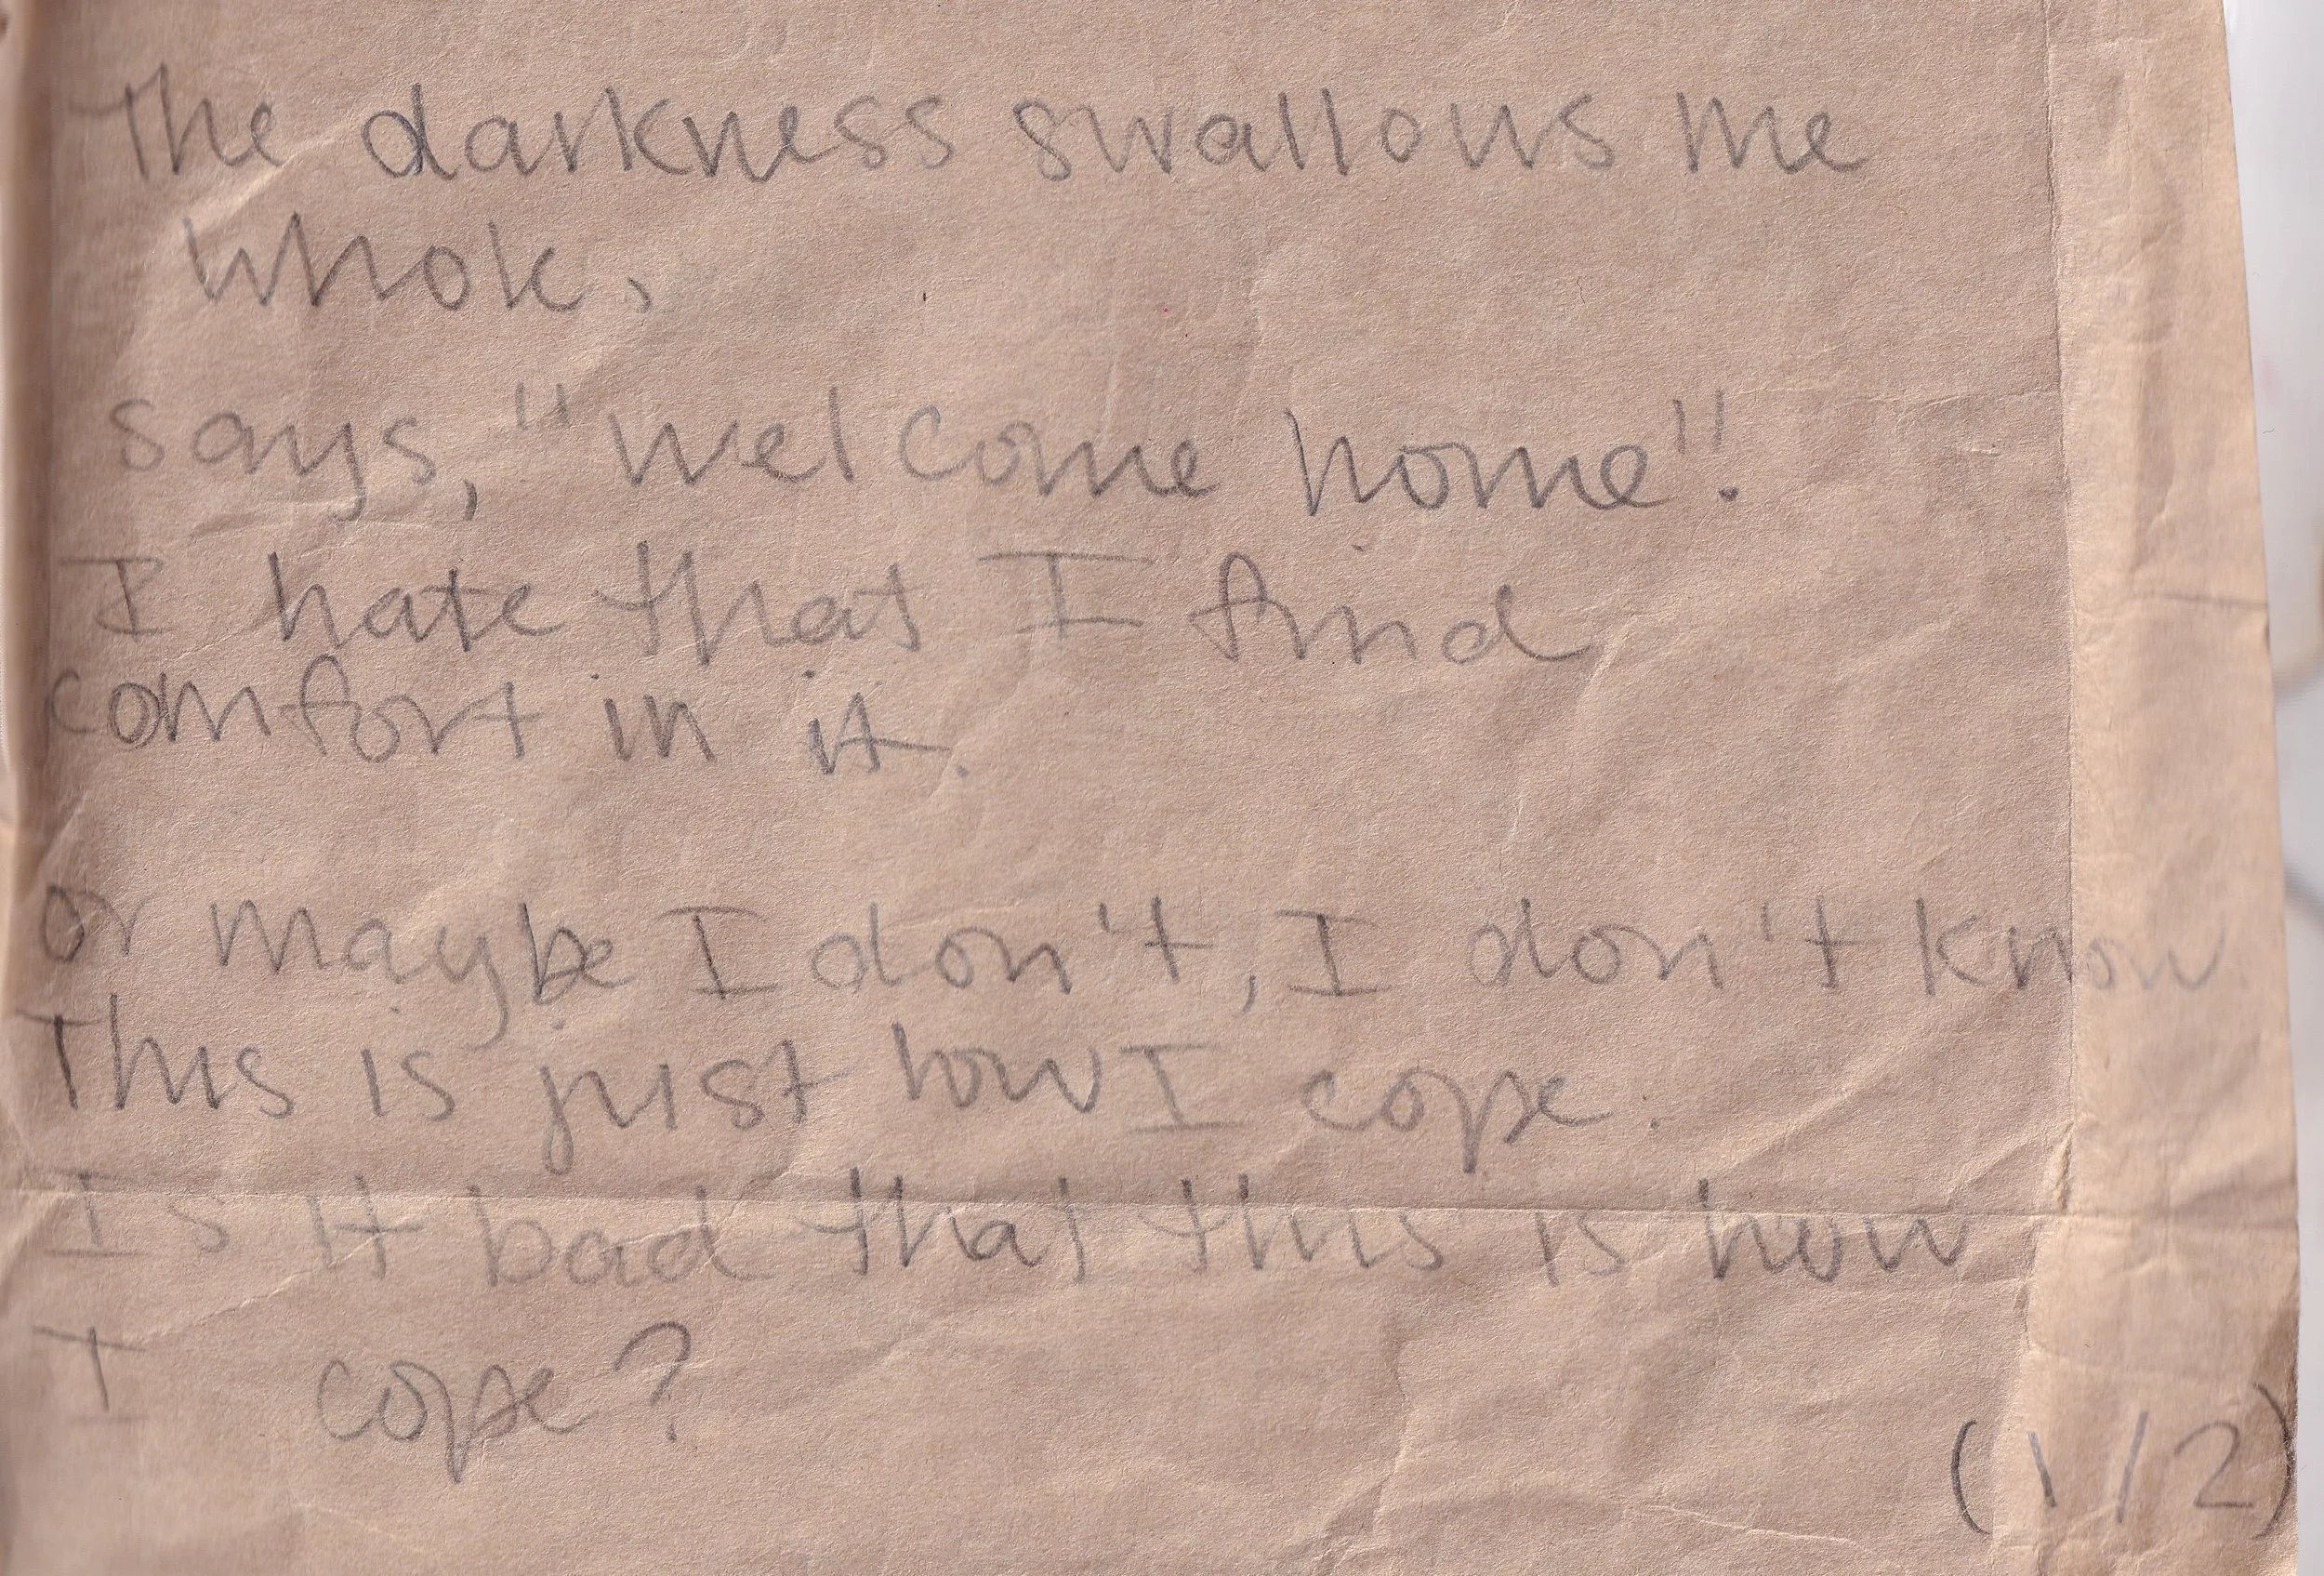 The darkness swallows me
whole,
says, "welcome home".
I hate that I find
comfort in it.
or maybe I don't, I don't know.
This is just how I cope.
Is it bad that this is how
I cope?
(1/2)